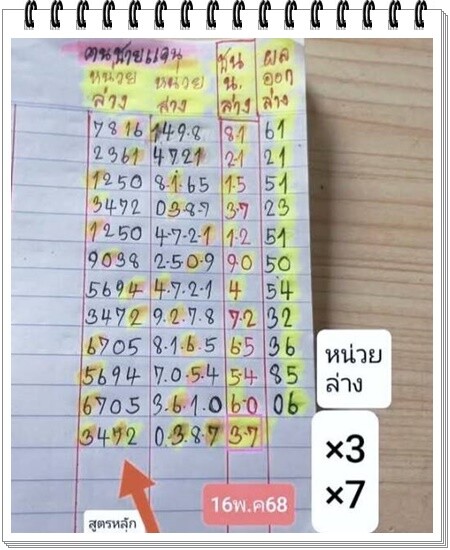 คนชายแดน
หน่วย ล่าง
หน่วย ล่าง
ชน น. ล่าง
ผล ออก ล่าง
7816 149.8 8.1 61
2361 4721 2.1 21
1250 8.1.65 1.5 51
3472 03.8.7 3.7 23
1250 4.7.2.1 1.2 51
9038 2.50.9 90 50
5694 4.7.2.1 4 54
3472 9.2.7.8 7.2 32
6705 8.1.6.5 6.5 36
5694 7.0.5.4 5.4 85
6705 3.6.1.0 6.0 06
3472 0.3.8.7 3.7
หน่วย
ล่าง
×3
×7
16พ.ค68
สูตรหลัก